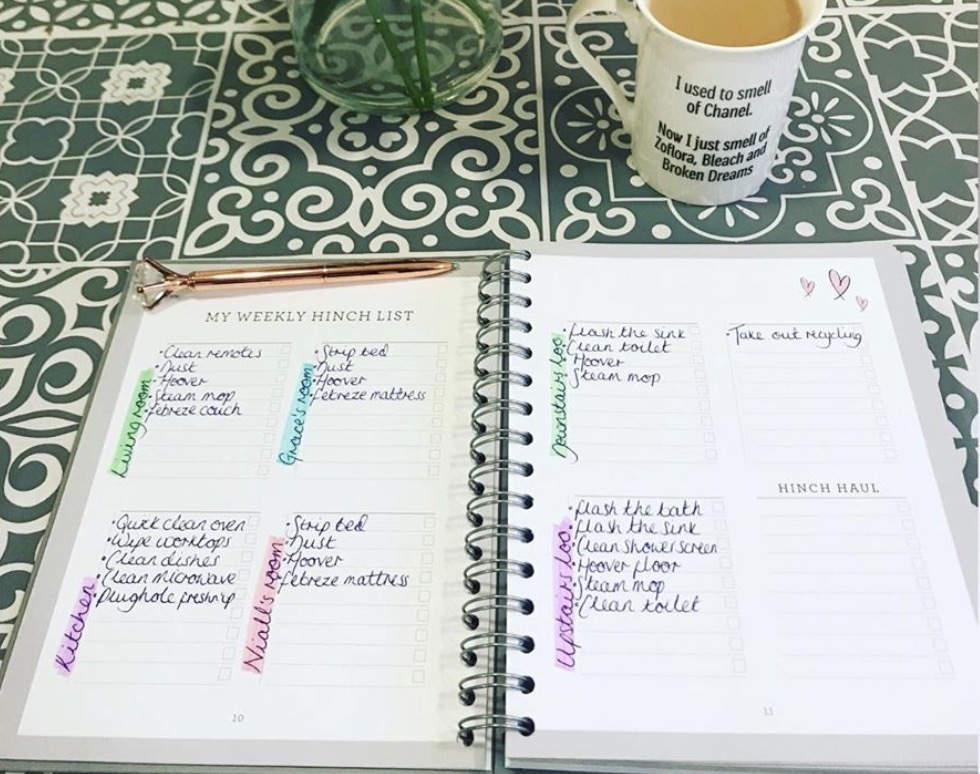 I used to smell
of Chanel.
Now I just smell of
Zoflora, Bleach and
Broken Dreams
MY WEEKLY HINCH LIST
Living room
•Clean remotes
•Dust
•Hoover
•Steam mop
•Febreze couch
Grace's room
•Strip bed
•Dust
•Hoover
•Febreze mattress
Kitchen
•Quick clean oven
•Wipe worktops
•Clean dishes
•Clean microwave
•Plughole freshn'up
Niall's room
•Strip bed
•Dust
•Hoover
•Febreze mattress
10
Downstairs Loo
•Flash the sink
•Clean toilet
•Hoover
•Steam mop
•Take out recycling
Upstairs Loo.
•Flash the bath
•Flash the sink
•Clean shower screen
•Hoover floor
•Steam mop
•Clean toilet
HINCH HAUL
11